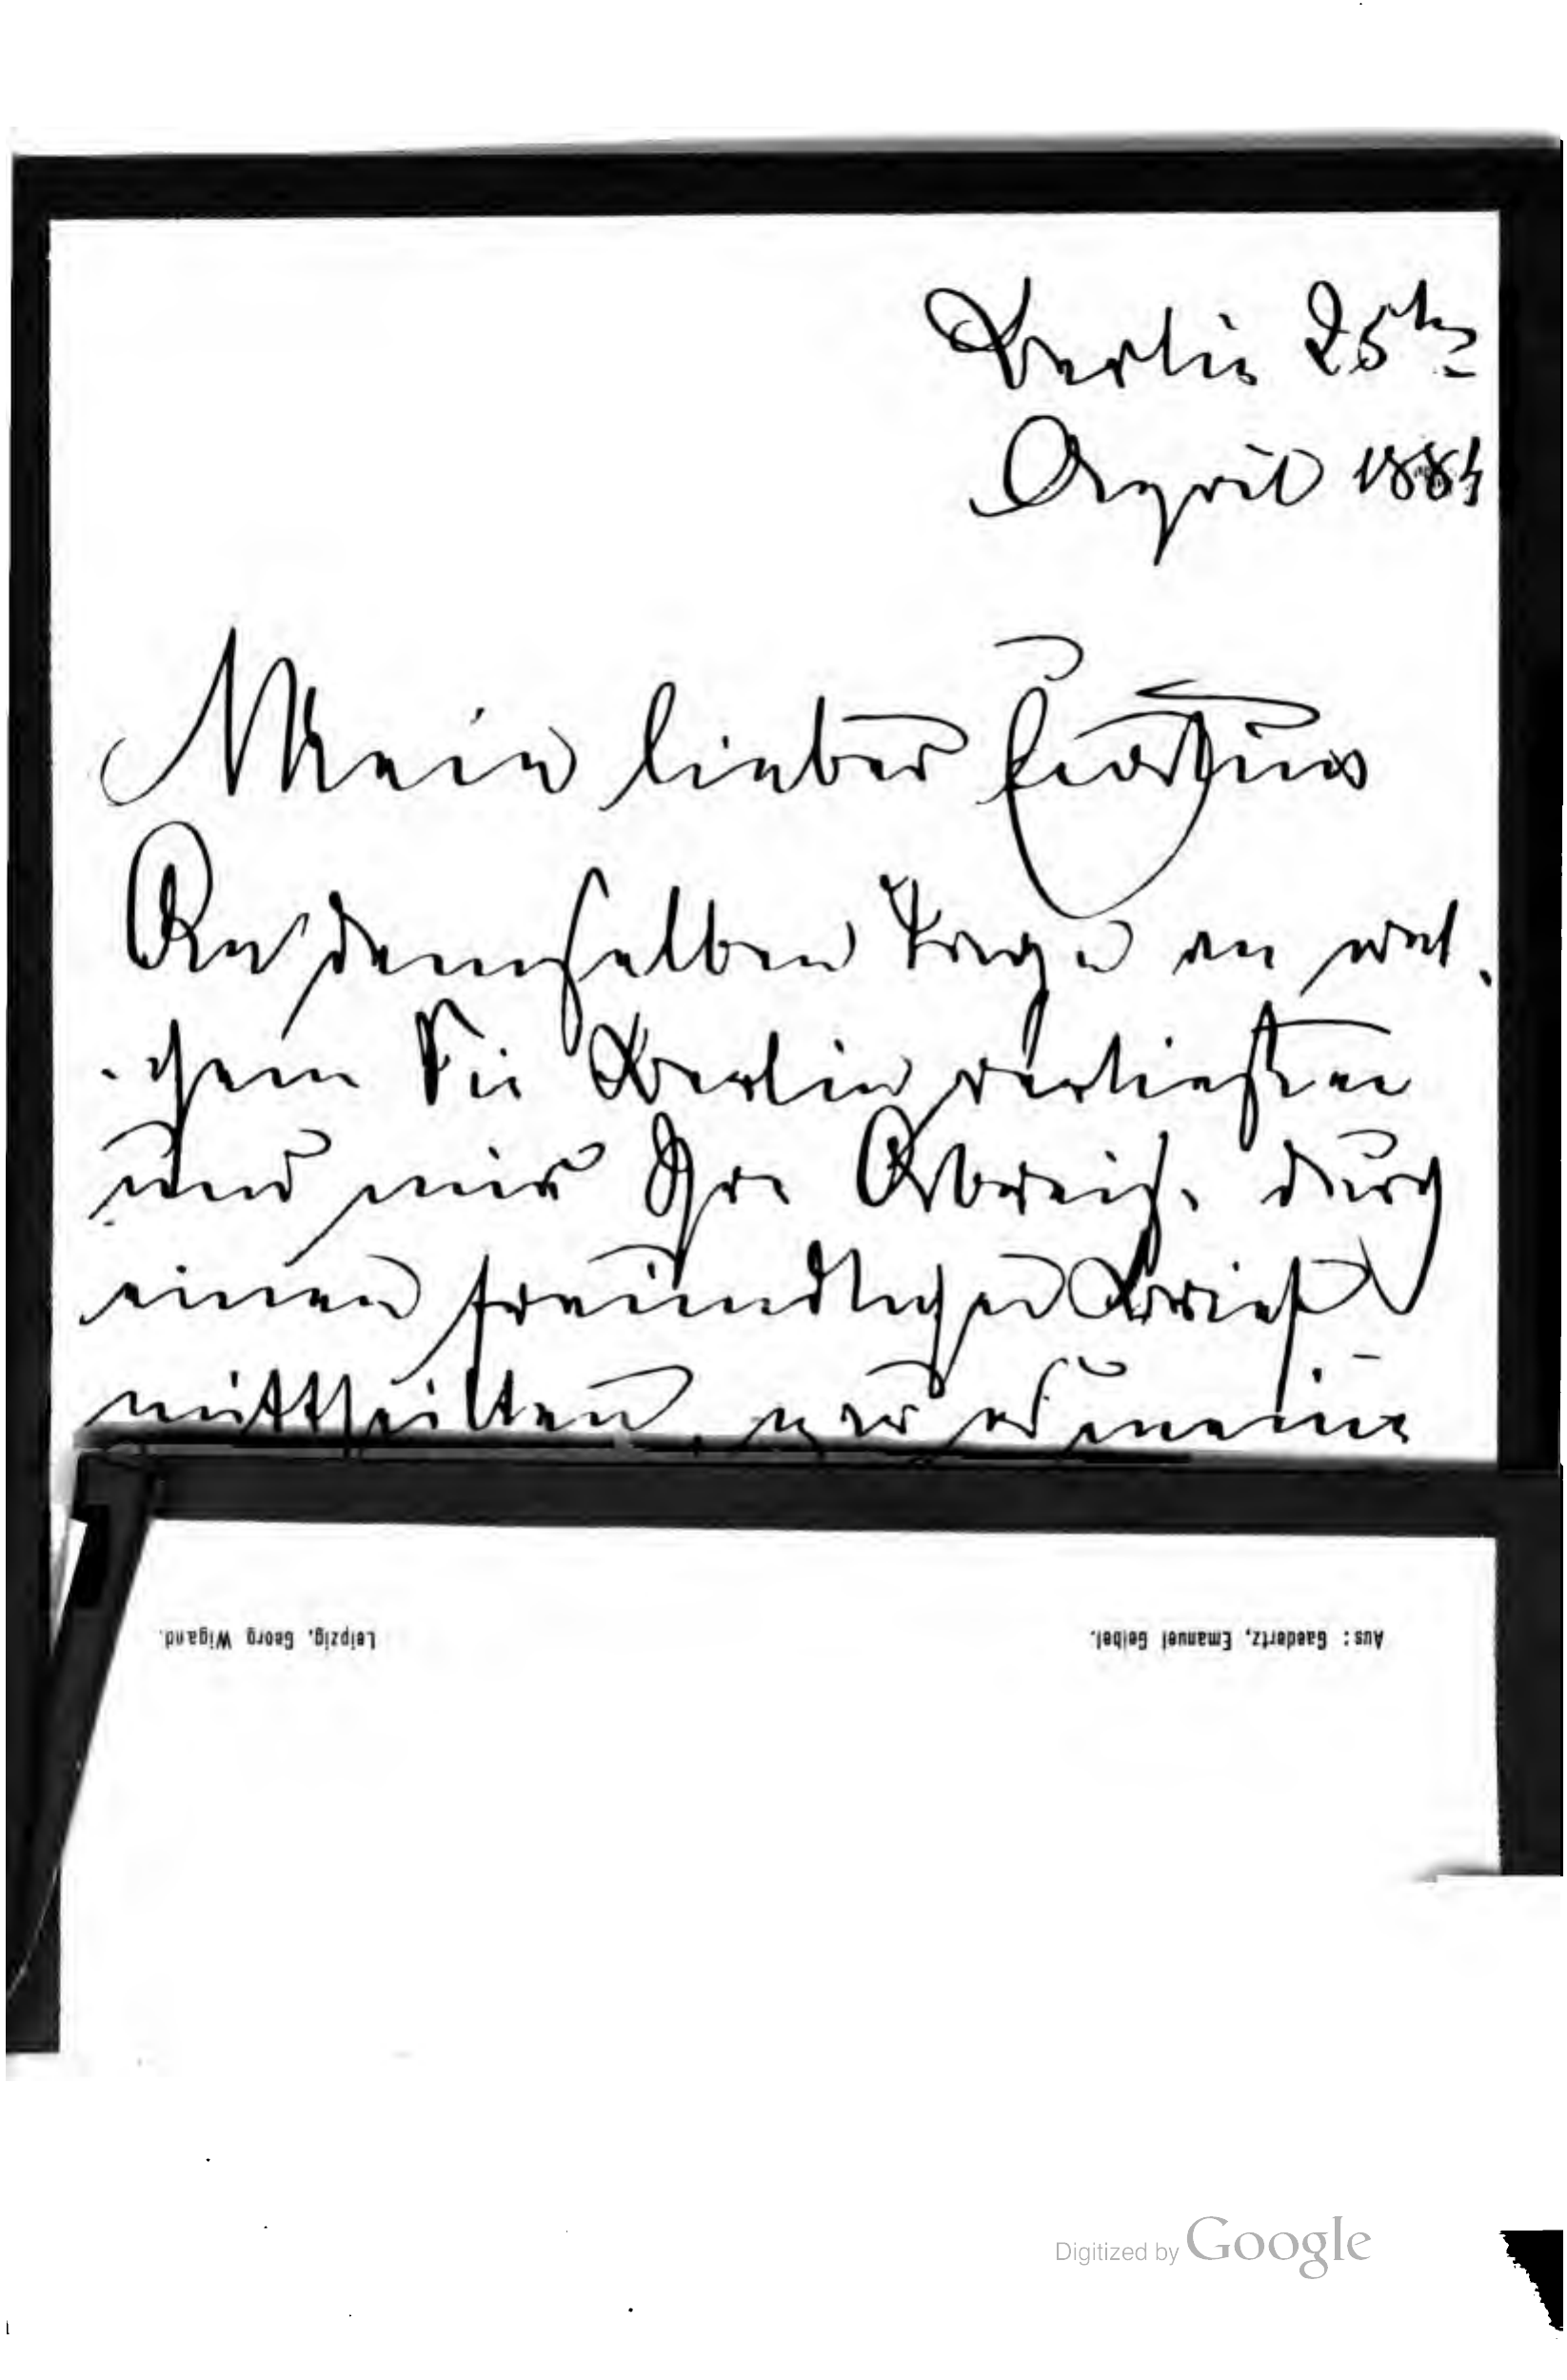 Berlin 25ten
April 1884
Mein lieber Curtius
An demselben Tage an wel-
-chem Sie Berlin verließen
und mir Ihre Abreise durch
einen freundlichen Brief
mittheilten, war es meine
Aus: Gaedertz, Emanuel Geibel.
Leipzig, Georg Wigand.
Digitized by Google